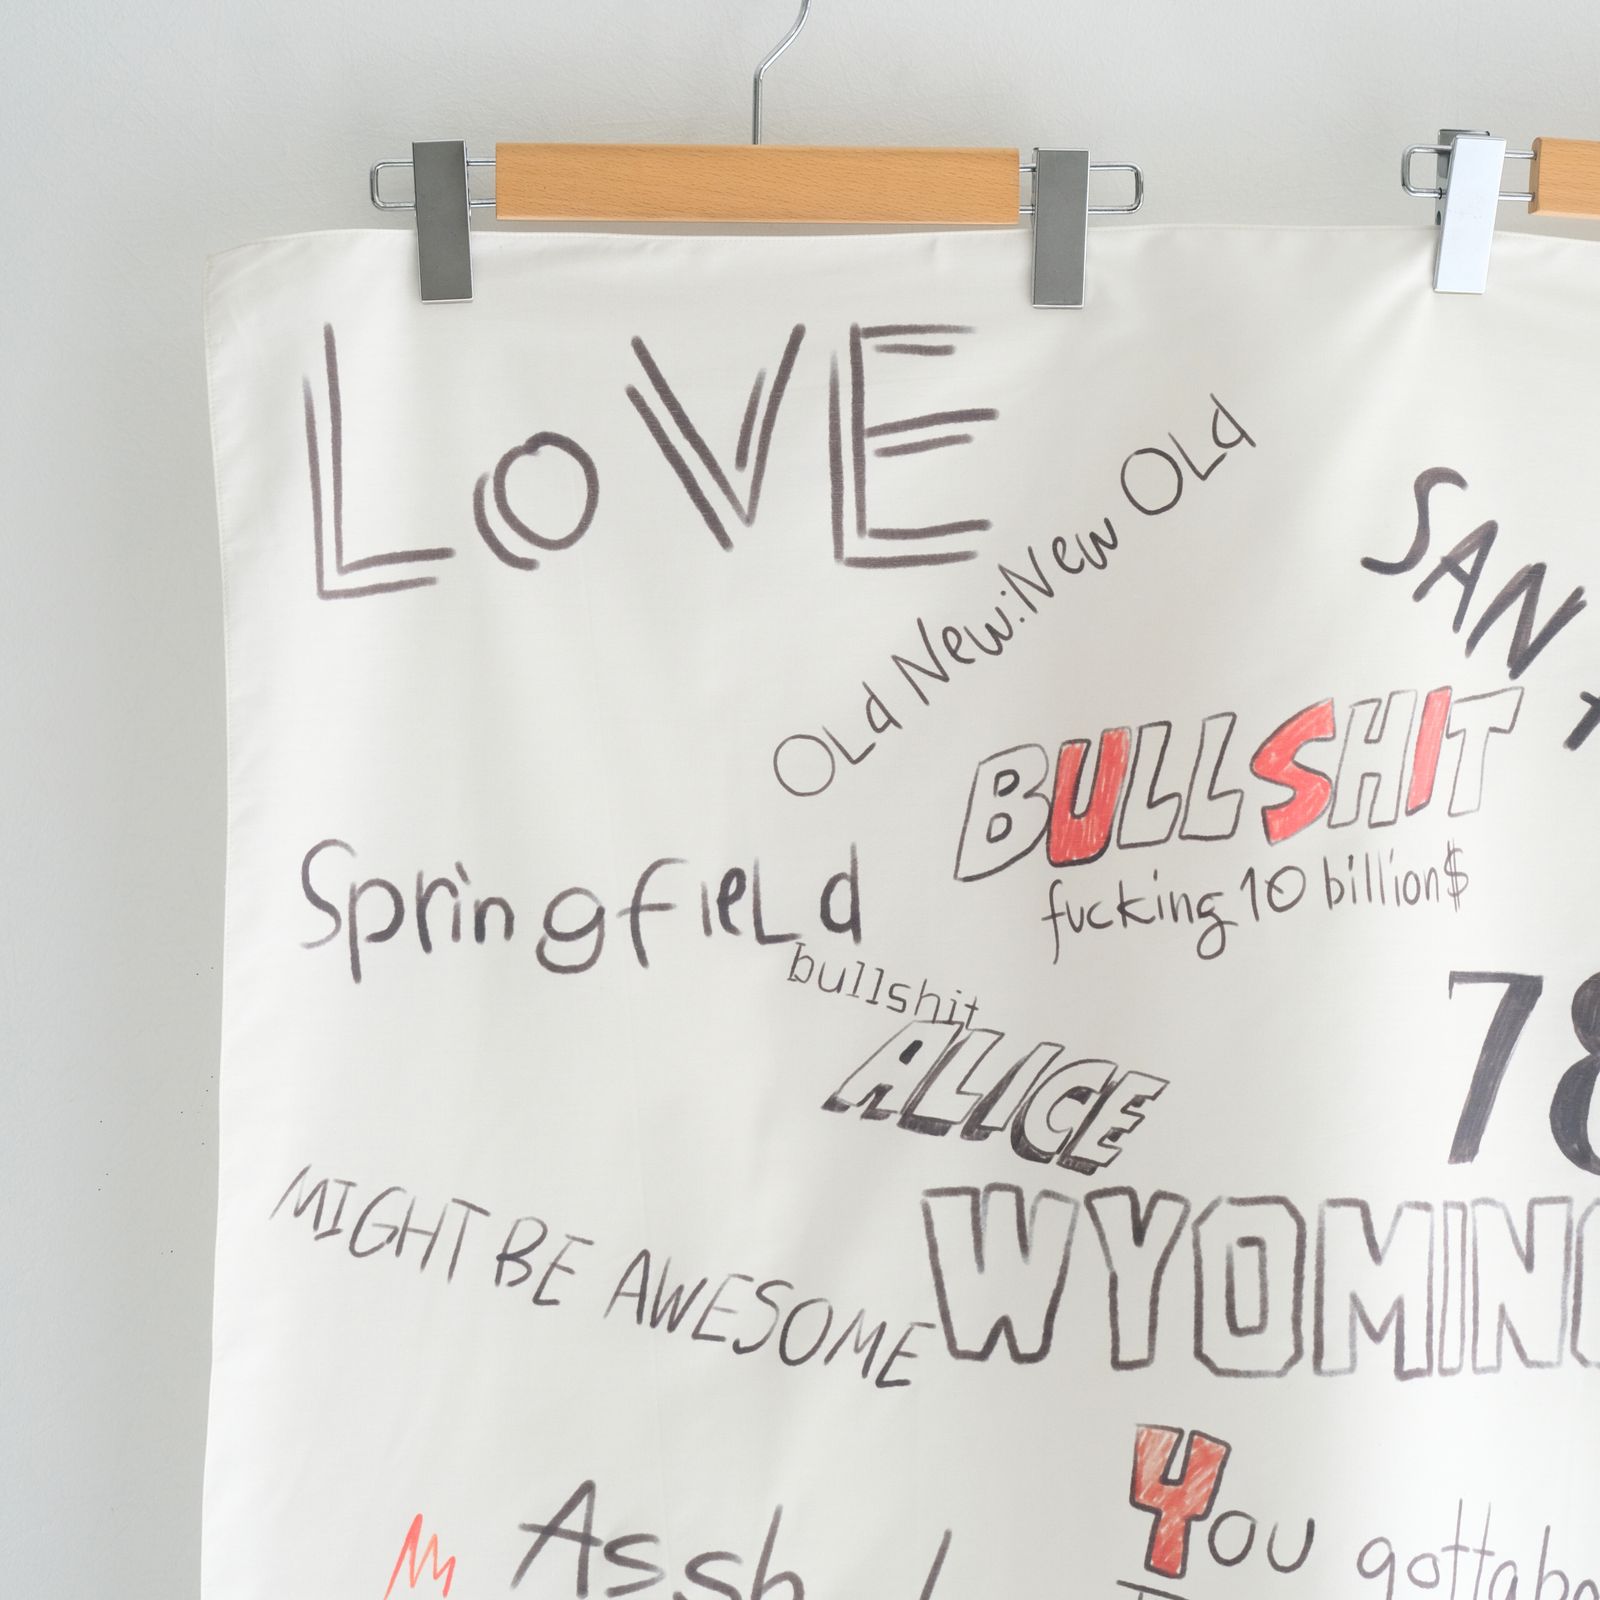 LOVE
OLd New:New OLd
SAN
BULLSHIT
fucking 10 billion$
SpringfieLd
bullshit
ALICE
78
MIGHT BE AWESOME
WYOMING
You